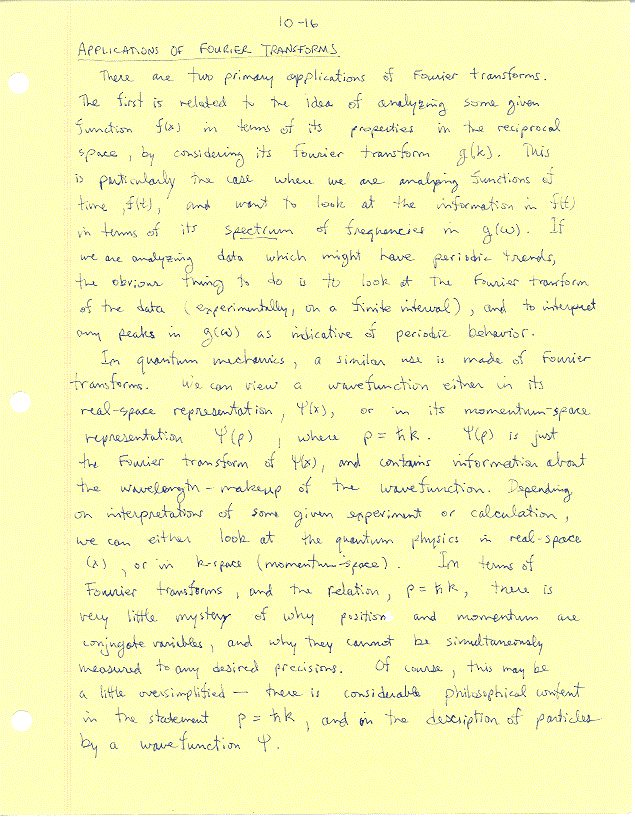 10-16
APPLICATIONS OF FOURIER TRANSFORMS
There are two primary applications of Fourier transforms.
The first is related to the idea of analyzing some given
function f(x) in terms of its properties in the reciprocal
space, by considering its Fourier transform g(k). This
is particularly the case where we are analyzing functions of
time, f(t), and want to look at the information in f(t)
in terms of its spectrum of frequencies in g(ω). If
we are analyzing data which might have periodic trends,
the obvious thing to do is to look at the Fourier transform
of the data (experimentally, on a finite interval), and to interpret
any peaks in g(ω) as indicative of periodic behavior.
In quantum mechanics, a similar use is made of Fourier
transforms. We can view a wavefunction either in its
real-space representation, Ψ(x), or in its momentum-space
representation Ψ(p), where p = ħk. Ψ(p) is just
the Fourier transform of Ψ(x), and contains information about
the wavelength-makeup of the wavefunction. Depending
on interpretations of some given experiment or calculation,
we can either look at the quantum physics in real-space
(x), or in k-space (momentum-space). In terms of
Fourier transforms, and the relation, p = ħk, there is
very little mystery of why position and momentum are
conjugate variables, and why they cannot be simultaneously
measured to any desired precisions. Of course, this may be
a little oversimplified — there is considerable philosophical content
in the statement p = ħk, and in the description of particles
by a wavefunction Ψ.